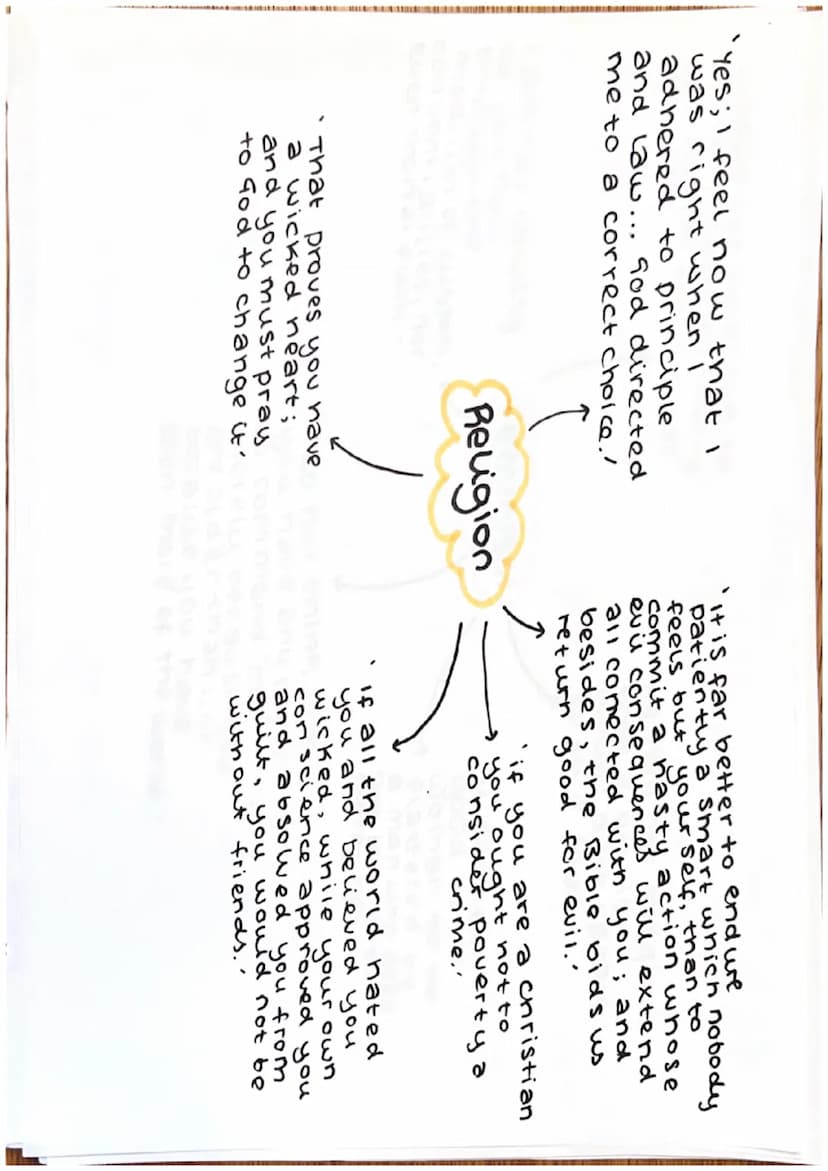 'Yes; I feel now that I
was right when I
adhered to principle
and law... God directed
me to a correct choice.'
'It is far better to endure
patiently a smart which nobody
feels but yourself, than to
commit a hasty action whose
evil consequences will extend
all conected with you; and
besides, the Bible bids us
return good for evil.'
Religion
'That proves you have
a wicked heart;
and you must pray
to God to change it'
'if you are a christian
you ought not to
consider poverty a
crime.'
'If all the world hated
you and believed you
wicked, while your own
conscience approved you
and absolved you from
guilt, you would not be
without friends.'